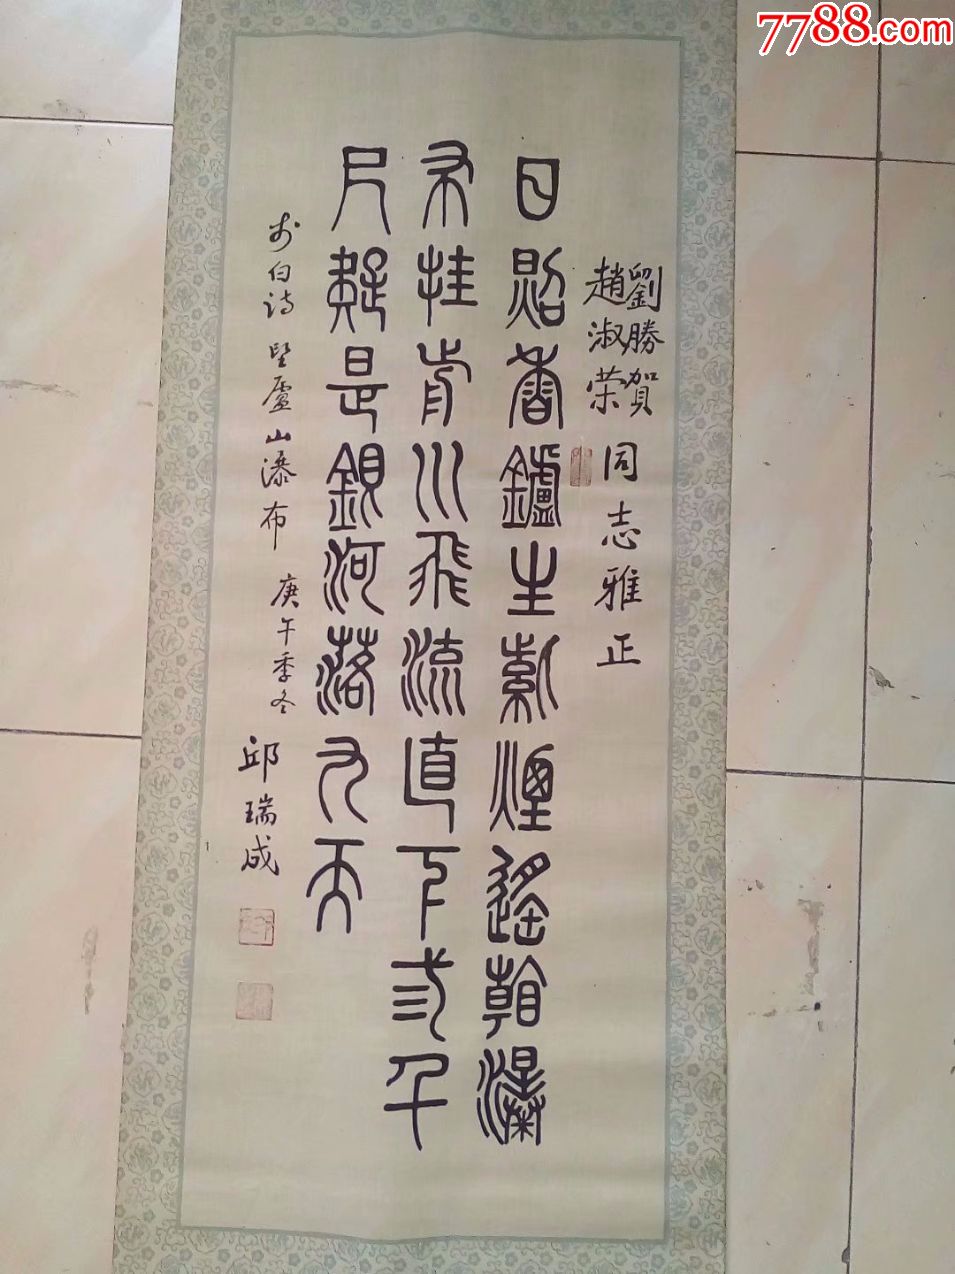 7788.com
劉勝賀
趙淑荣
同志雅正
日照香鑪生紫煙遙看瀑
布挂前川飛流直下弎千
尺疑是銀河落九天
李白诗 望廬山瀑布 庚午季冬 邱瑞成